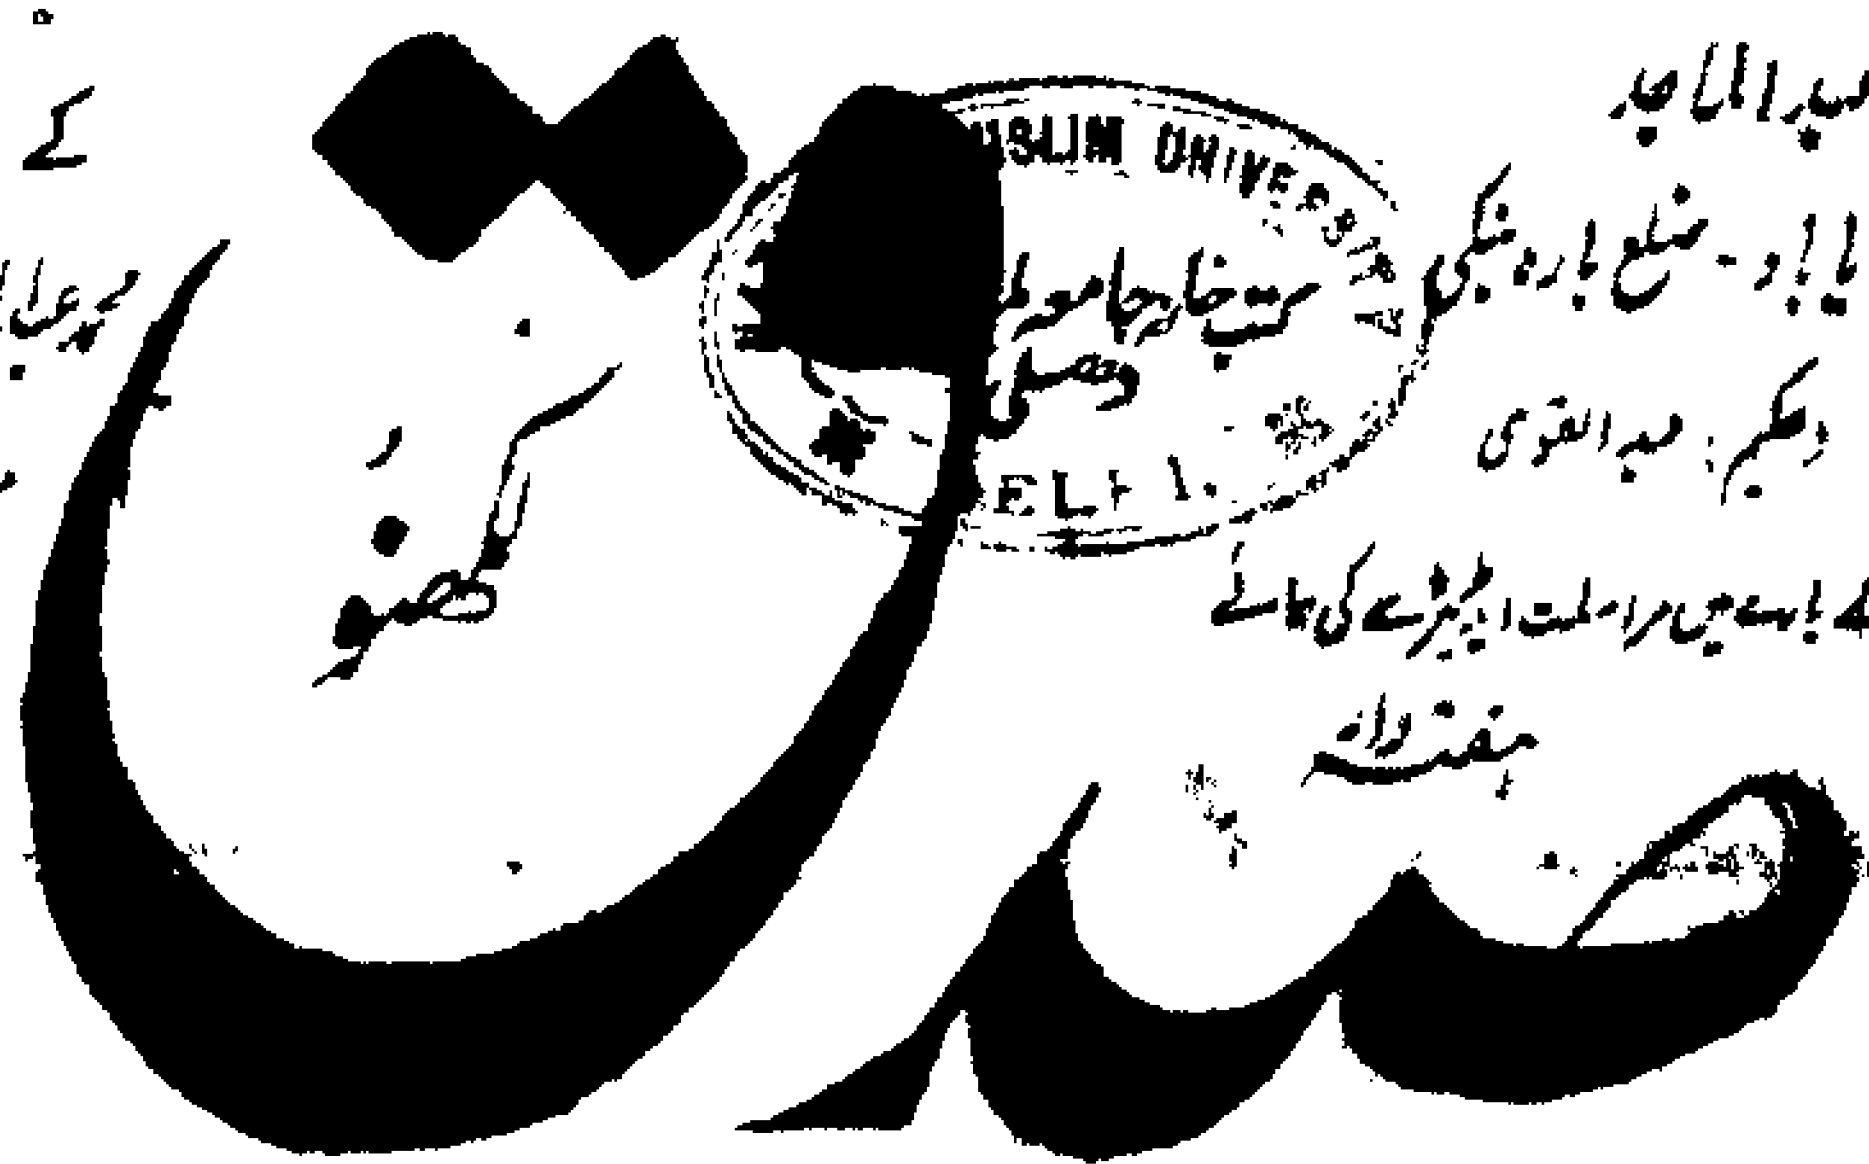 عبدالماجد
یاباد - ضلع بارہ بنکی
حکیم: عبدالقوی
کے بارے میں مراسلت ایڈیٹر سے کی جائے
ہفتہ وار
صدق
لکھنؤ
MUSLIM UNIVERSITY
کتب خانہ جامعہ
دھلی
DELHI.
کے